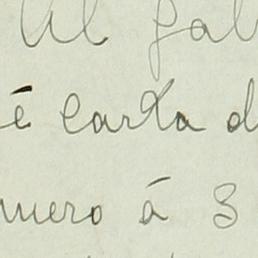 al fal
é carta d
mero á 3